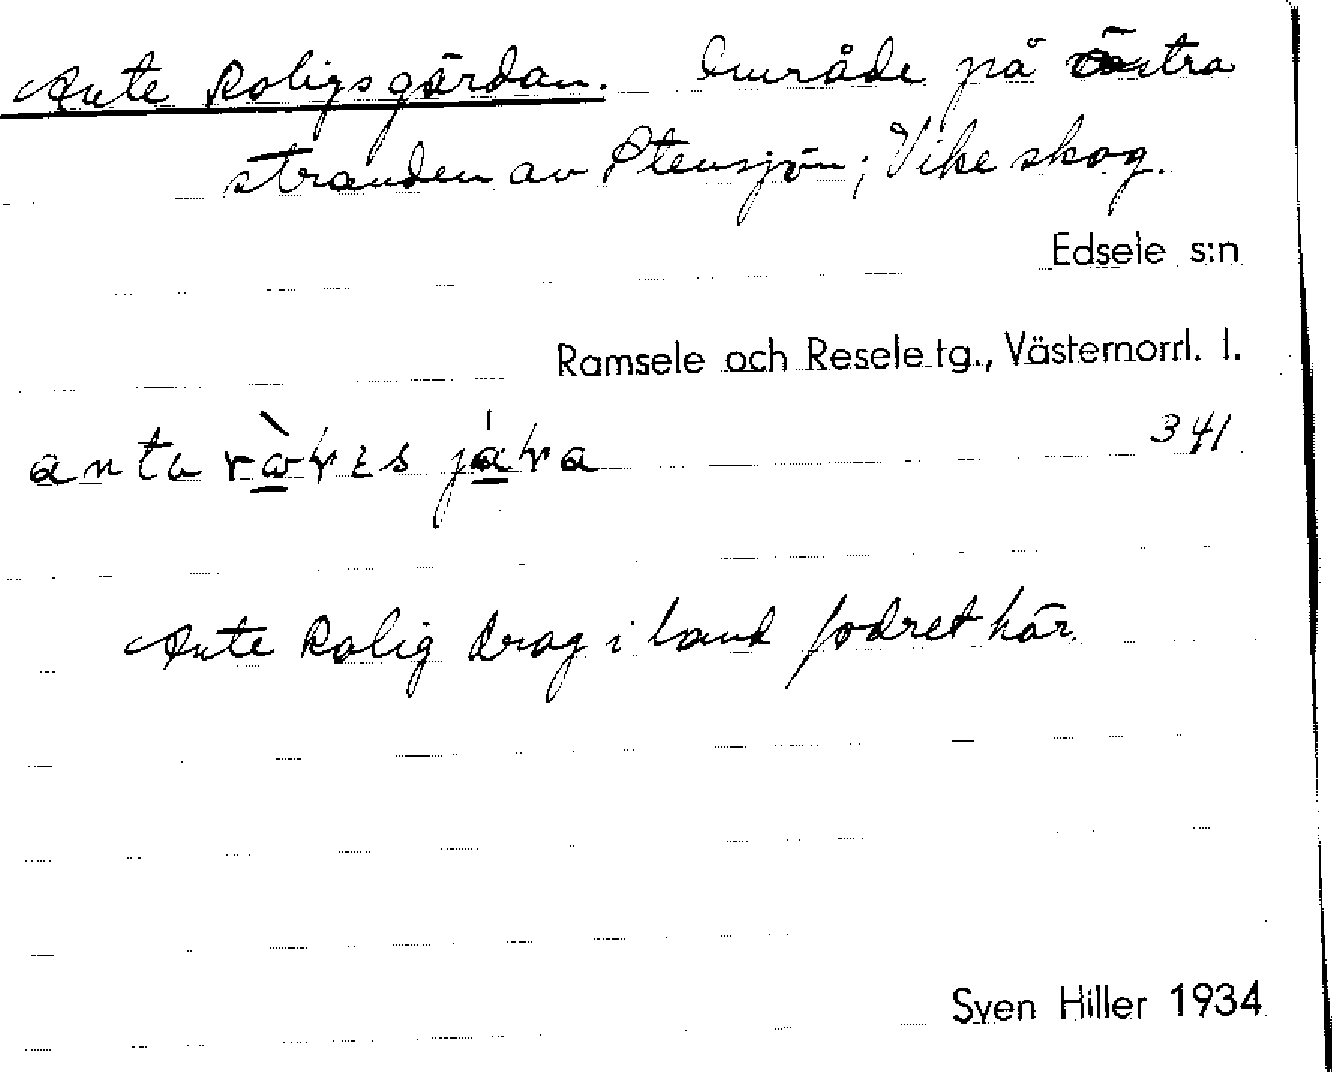 Ante Roligsgärdan. Område på östra
stranden av Stensjön; Vike skog.
Edsele s:n
Ramsele och Resele tg., Västernorrl. l.
341
Ante Rolig drog i land fodret här.
Sven Hiller 1934